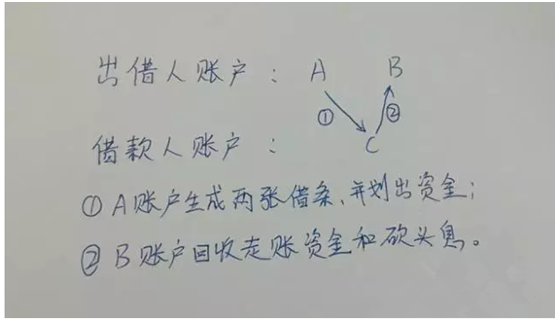 出借人账户： A B
① ②
借款人账户： C
① A账户生成两张借条、并划出资金；
② B账户回收走账资金和砍头息。